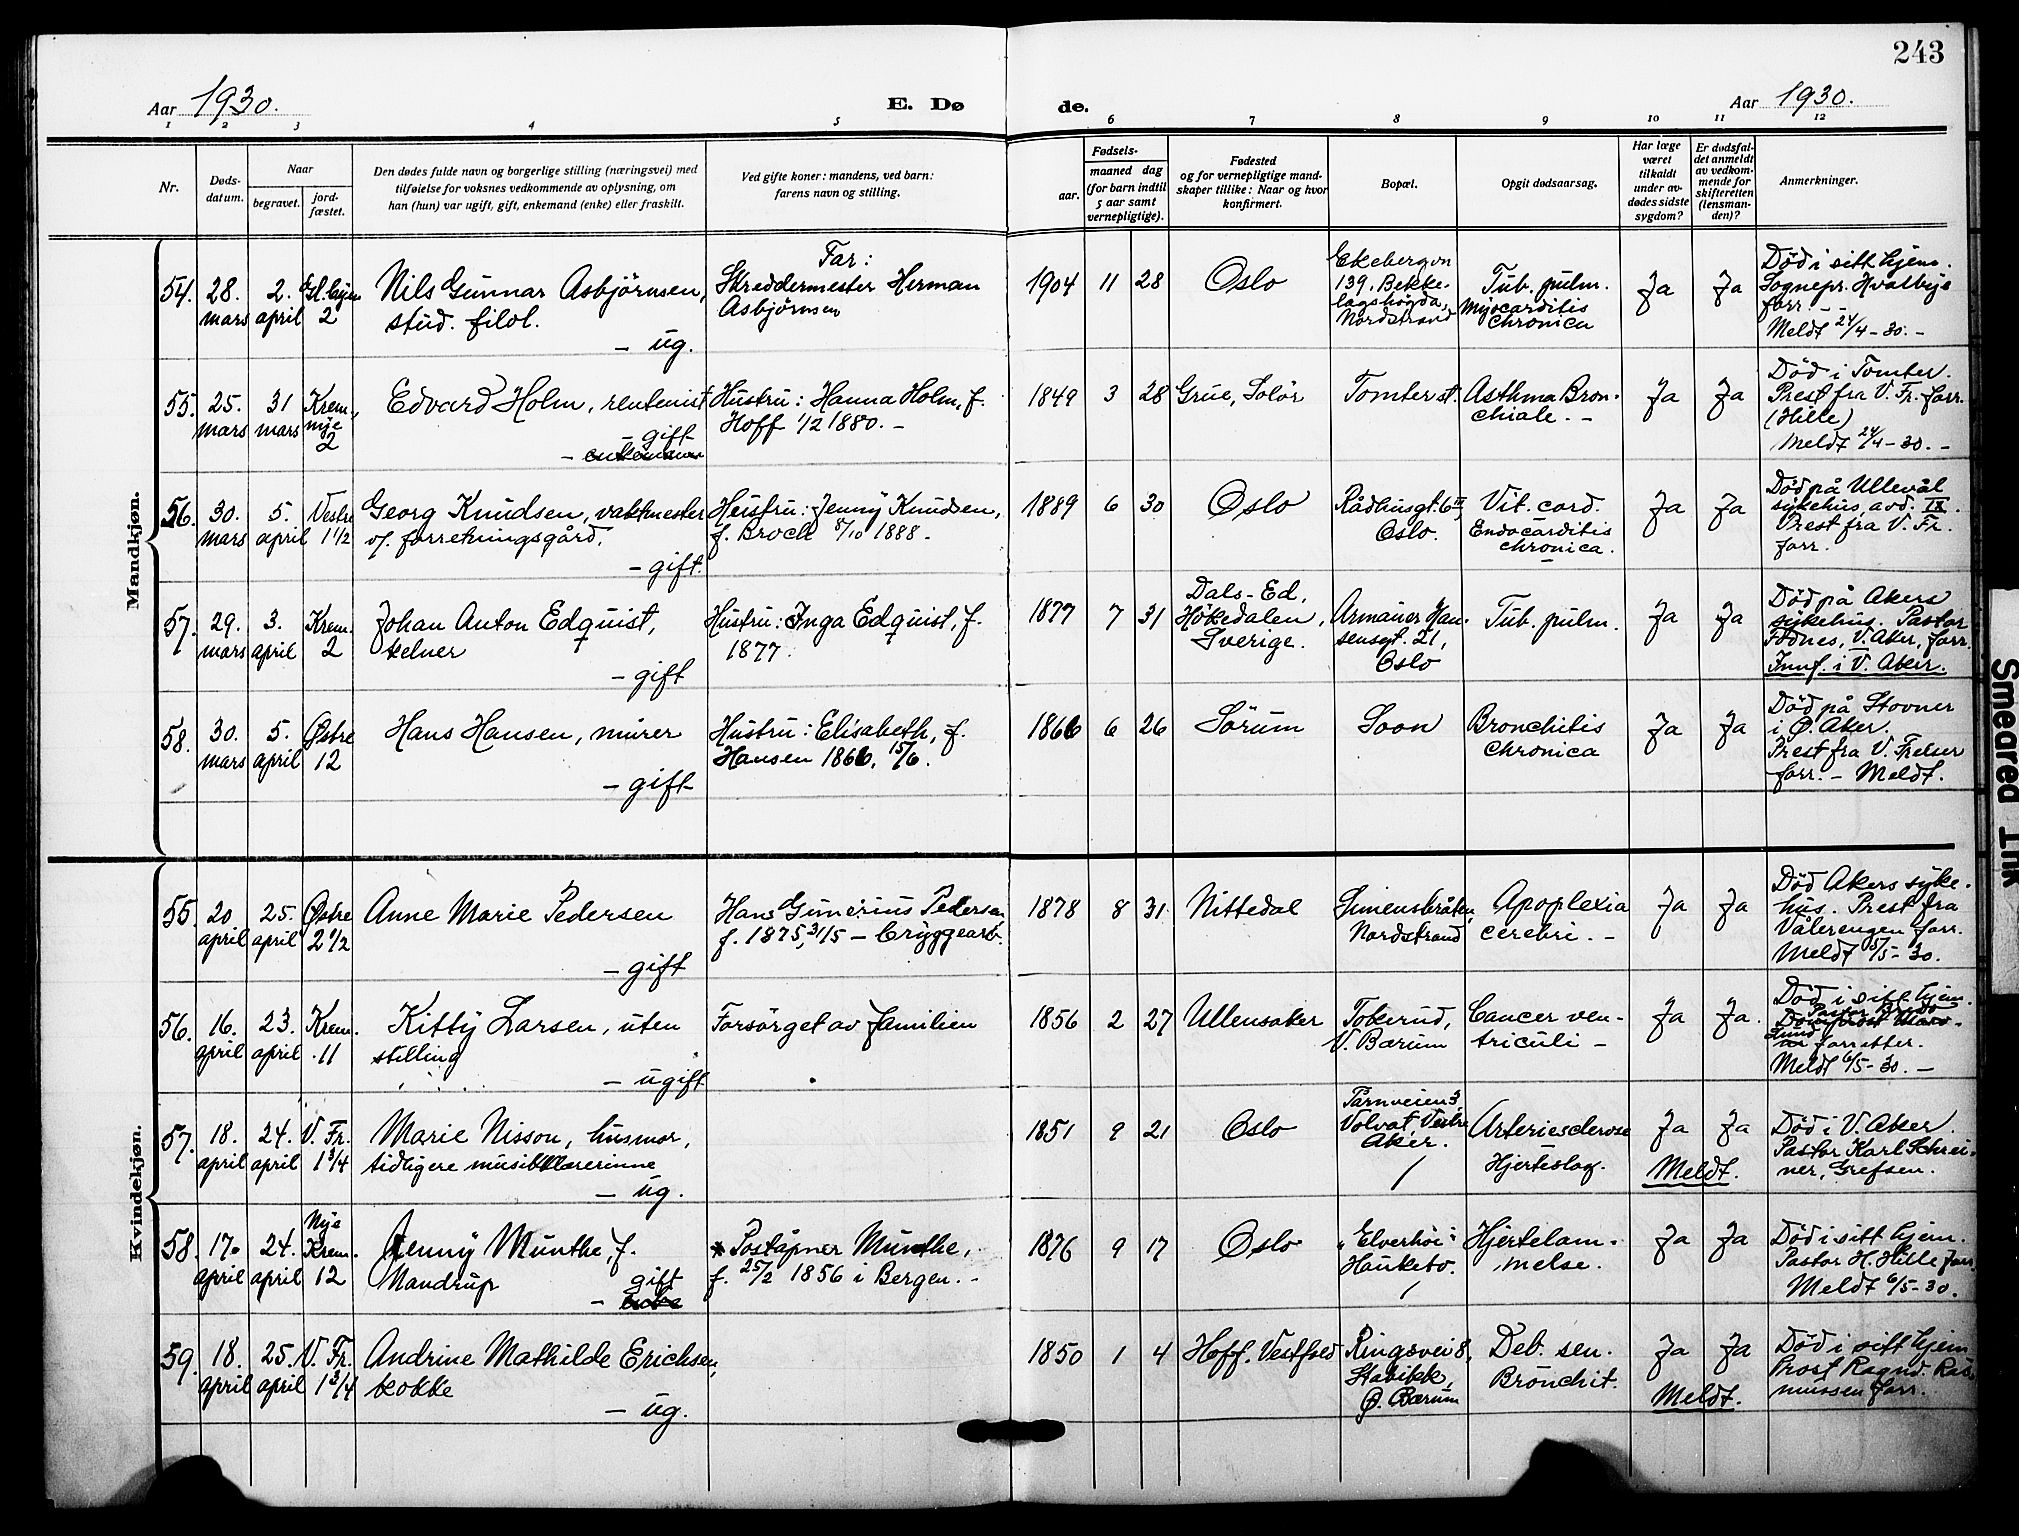 243
Aar 1930. E. Dø de. Aar 1930.
1 2 3 4 5 6 7 8 9 10 11 12
Nr. Døds-datum. Naar begravet. jord-fæstet. Den dødes fulde navn og borgerlige stilling (næringsvei) med tilføielse for voksnes vedkommende av oplysning, om han (hun) var ugift, gift, enkemand (enke) eller fraskilt. Ved gifte koner: mandens, ved barn: farens navn og stilling. Fødsels- aar. maaned dag (for barn indtil 5 aar samt vernepligtige). Fødested og for vernepligtige mandskaper tillike: Naar og hvor konfirmert. Bopæl. Opgit dødsaarsag. Har læge været tilkaldt under avdødes sidste sygdom? Er dødsfaldet anmeldt av vedkommende for skifteretten (lensmanden)? Anmerkninger.
Mandkjøn.
54. 28. mars 2. april 2 Nils Gunnar Asbjörnsen, stud. filol. – ug. Far: Skreddermester Herman Asbjörnsen 1904 11 28 Oslo Ekebergvn 139, Bekkelagshögda, Nordstrand Tub. pulm. Myocarditis chronica Ja Ja Död i sitt hjem. Sognepr. Hvalbye forr. – Meldt 24/4-30. –
55. 25. mars 31 mars Krem. nye 2 Edvard Holm, rentenist – gift – enkemann Hustru: Hanna Holm, f. Hoff 1/2 1880. – 1849 3 28 Grue, Solör Tomter st. Asthma Bronchiale. – Ja Ja Död i Tomter. Prest fra V. Fr. forr. (Hille) Meldt 24/4-30. –
56. 30. mars 5. april Vestre 1 1/2 Georg Knudsen, vaktmester v/ forretningsgård. – gift. Hustru: Jenny Knudsen, f. Broch 8/10 1888. 1889 6 30 Oslo Rådhusgt. 6 III, Oslo. Vit. cord. Endocarditis chronica. – Ja Ja Död på Ullevål sykehus, avd. IX. Prest fra V. Fr. forr.
57. 29. mars 3. april Krem. 2 Johan Anton Edquist, kelner – gift Hustru: Inga Edquist, f. 1877. 1877 7 31 Dals-Ed, Hökedalen, Sverige. Armauer Hansensgt. 21, Oslo Tub. pulm. Ja Ja Död på Akers sykehus. Pastor Födnes, V. Aker, forr. Innf. i V. Aker.
58. 30. mars 5. april Østre 12 Hans Hansen, murer – gift Hustru: Elisabeth, f. Hansen 1866, 15/6. 1866 6 26 Sörum Soon Bronchitis chronica Ja Ja Död på Stovner i Ø. Aker. Prest fra V. Frelser forr. – Meldt.
Kvindekjøn.
55. 20 april 25. april Østre 2 1/2 Anne Marie Pedersen – gift Hans Gunerius Pedersen f. 1875, 3/15 – bryggearb. 1878 8 31 Nittedal Simensbråten Nordstrand Apoplexia cerebri. – Ja Ja Död Akers sykehus. Prest fra Vålerengen forr. Meldt 5/5-30.
56. 16. april 23. april Krem. 11 Kitty Larsen, uten stilling – ugift Forsörget av familien 1856 2 27 Ullensaker Tokerud, V. Bærum Cancer ventriculi – Ja Ja. Död i sitt hjem. Pastor Lund forretter. Meldt 6/5-30. –
57. 18. april 24. april V. Fr. 1 3/4 Marie Nisson, husmor, tidligere musiklærerinne – ug. 1851 9 21 Oslo Tårnveien 3 Volvat, Vestre Aker. Arteriesclerose Hjerteslag. Ja Ja Meldt. Död i V. Aker. Pastor Karl Schreiner, Grefsen.
58. 17. april 24. april Nye Krem. 12 Jenny Munthe, f. Mandrup gift – enke * Poståpner Munthe, f. 25/2 1856 i Bergen. – 1876 9 17 Oslo "Elverhöi" Hauketo. Hjertelammelse. Ja Ja Död i sitt hjem. Pastor H. Hille forr. Meldt 6/5-30.
59. 18. april 25. april V. Fr. 1 3/4 Andrine Mathilde Erichsen, kokke – ug. 1850 1 4 Hoff. Vestfold Ringsvei 8, Stabekk, Ø. Bærum Deb. sen. Bronchit. Ja Ja Meldt. Död i sitt hjem Prost Ragnd. Rasmussen forr.
Smeared Ink